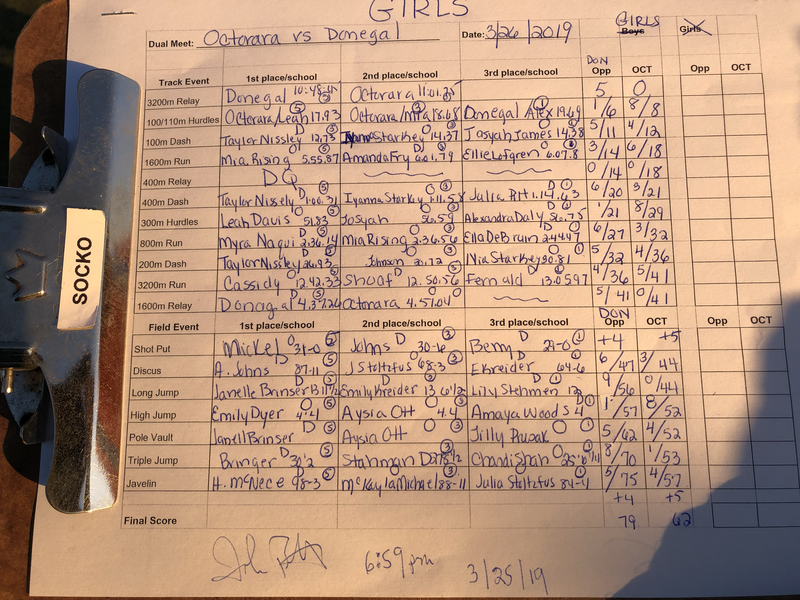 GIRLS
Dual Meet: Octorara vs Donegal Date: 3/26/2019 GIRLS Boys Girls
Track Event 1st place/school 2nd place/school 3rd place/school DON Opp OCT Opp OCT
3200m Relay Donegal 10:48 (5) Octorara 11:01.25 5 0
100/110m Hurdles Octorara/Leah 17.93 (5) Octorara/Mia 18.68 (3) Donegal/Alex 19.69 (1) 1/6 8/8
100m Dash Taylor Nissley D 12.75 (5) Starkey O 14.37 (3) Josyah James O 14.38 (1) 5/11 4/12
1600m Run Mia Rising O 5.55.87 (5) Amanda Fry D 6.01.79 (3) Ellie Lofgren O 6.07.8 3/14 6/18
400m Relay DQ 0/14 0/18
400m Dash Taylor Nissely D 1:00.31 (5) Iyanna Starkey O 1:11.58 (3) Julia D 1.14.63 (1) 6/20 3/21
300m Hurdles Leah Davis O 51.83 (5) Josyah O 56.59 (3) Alexandra Daly D 56.75 (1) 1/21 8/29
800m Run Myra Naqui D 2:36.14 (5) Mia Rising O 2:36.56 (3) Ella DeBruin D 2:44.47 (1) 6/27 3/32
200m Dash Taylor Nissley D 26.93 (5) Johnson O (3) Nia Starkey O 30.81 (1) 5/32 4/36
3200m Run Cassidy O 12.42.33 (5) Shoof D 12.50.56 Fernald D 13.05.97 4/36 5/41
1600m Relay Donagal D 4.37.26 (5) Octorara O 4.51.04 5/41 0/41
Field Event 1st place/school 2nd place/school 3rd place/school DON Opp OCT Opp OCT
Shot Put Mickel O 31-0 Johns D 30-6 (3) Berry D 29-0 (1) +4 +5
Discus A. Johns D 87-11 (5) J Stoltzfus O 68-3 (3) E Kreider D 64-6 (1) 6/47 3/44
Long Jump Janelle Brinser D (5) Emily Kreider D 13 6 1/2 Lily Stehmen D (1) 9/56 0/44
High Jump Emily Dyer O 4'4 (5) Aysia Ott O 4.4 (3) Amaya Woods D 4 (1) 1/57 8/52
Pole Vault Janell Brinser D (5) Aysia Ott O (3) Jilly O (1) 5/62 4/52
Triple Jump Bringer D 30'2 (5) Stahman D (3) Chandi Shah O (1) 8/70 1/53
Javelin H. McNece D 98-3 (5) McKayla Michael O 88-11 (3) Julia Stoltzfus O 84-4 (1) 5/75 4/57
+4 +5
Final Score 79 62
6:59 pm 3/25/19
SOCKO